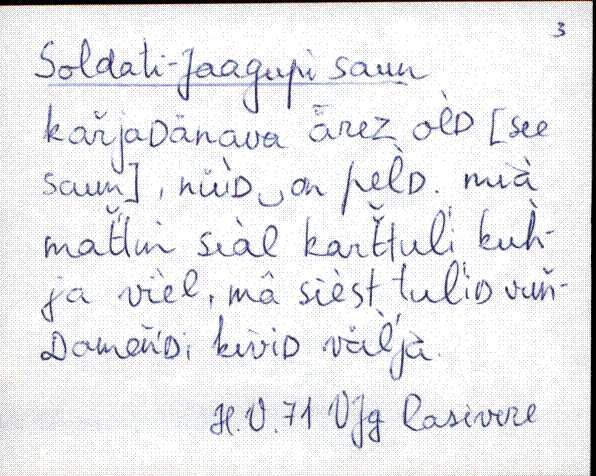 3
Soldati-Jaagupi saun
kaŕjaDänava ärez òlD [see
saun], nüùD‿on pèlD. mià
mat̆t̆in siàl kart̆t̆uli kuh̀-
ja vièl, mâ sièst tuliD vuǹ-
Dameń'Di kiviD vàl'jà.
H.V. 71 VJg Rasivere